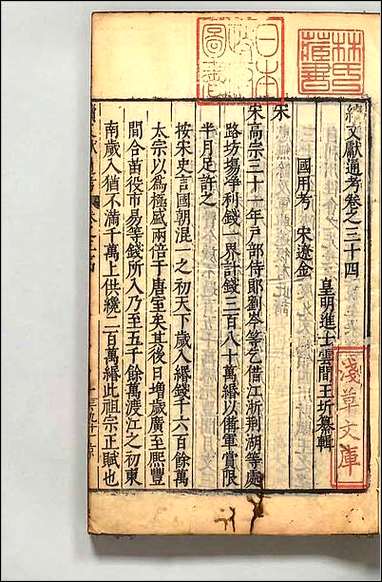 林氏藏書
日本
淺草文庫
續文獻通考卷之三十四
皇明進士雲間王圻纂輯
國用考　宋遼金
宋
宋高宗三十一年戶部侍郎劉岑等乞借江浙荊湖等處
路坊場爭利錢一界計錢三百八十萬緡以備軍賞限
半月足許之
按宋史言國朝混一之初天下歲入緡錢千六百餘萬
太宗以為極盛兩倍于唐室矣其後日增歲廣至熙豐
間合苗役易等錢所入乃至五千餘萬渡江之初東
南歲入猶不滿千萬上供纔二百萬緡此祖宗正賦也